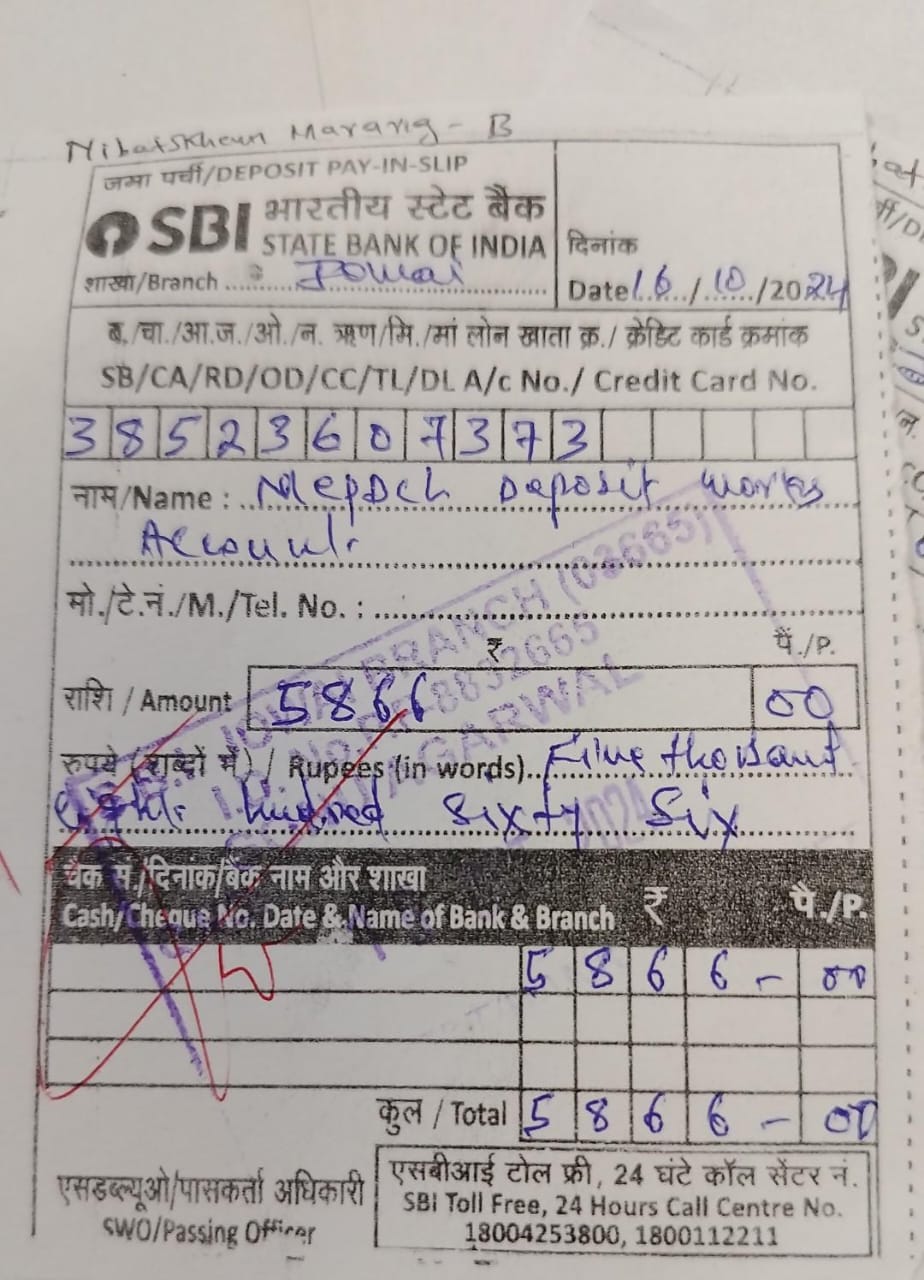 जमा पर्ची/DEPOSIT PAY-IN-SLIP
SBI भारतीय स्टेट बैंक
STATE BANK OF INDIA
शाखा/Branch
दिनांक
Date 16/10/2024
ब./चा./आ.ज./ओ./न. ऋण/मि./मां लोन खाता क्र./ क्रेडिट कार्ड क्रमांक
SB/CA/RD/OD/CC/TL/DL A/c No./ Credit Card No.
38523607373
नाम/Name : Mepdcl Deposit works
Account.
मो./टे.नं./M./Tel. No. :
₹ पै./P.
राशि / Amount 5866 00
रुपये (शब्दों में) / Rupees (in words) Five thousand
eight hundred sixty six
BRANCH (02665)
AGARWAL
चैक सं./दिनांक/बैंक नाम और शाखा
Cash/Cheque No. Date & Name of Bank & Branch ₹ पै./P.
5 8 6 6 - 00
कुल / Total 5 8 6 6 - 00
एसडब्ल्यूओ/पासकर्ता अधिकारी
SWO/Passing Officer
एसबीआई टोल फ्री, 24 घंटे कॉल सेंटर नं.
SBI Toll Free, 24 Hours Call Centre No.
18004253800, 1800112211